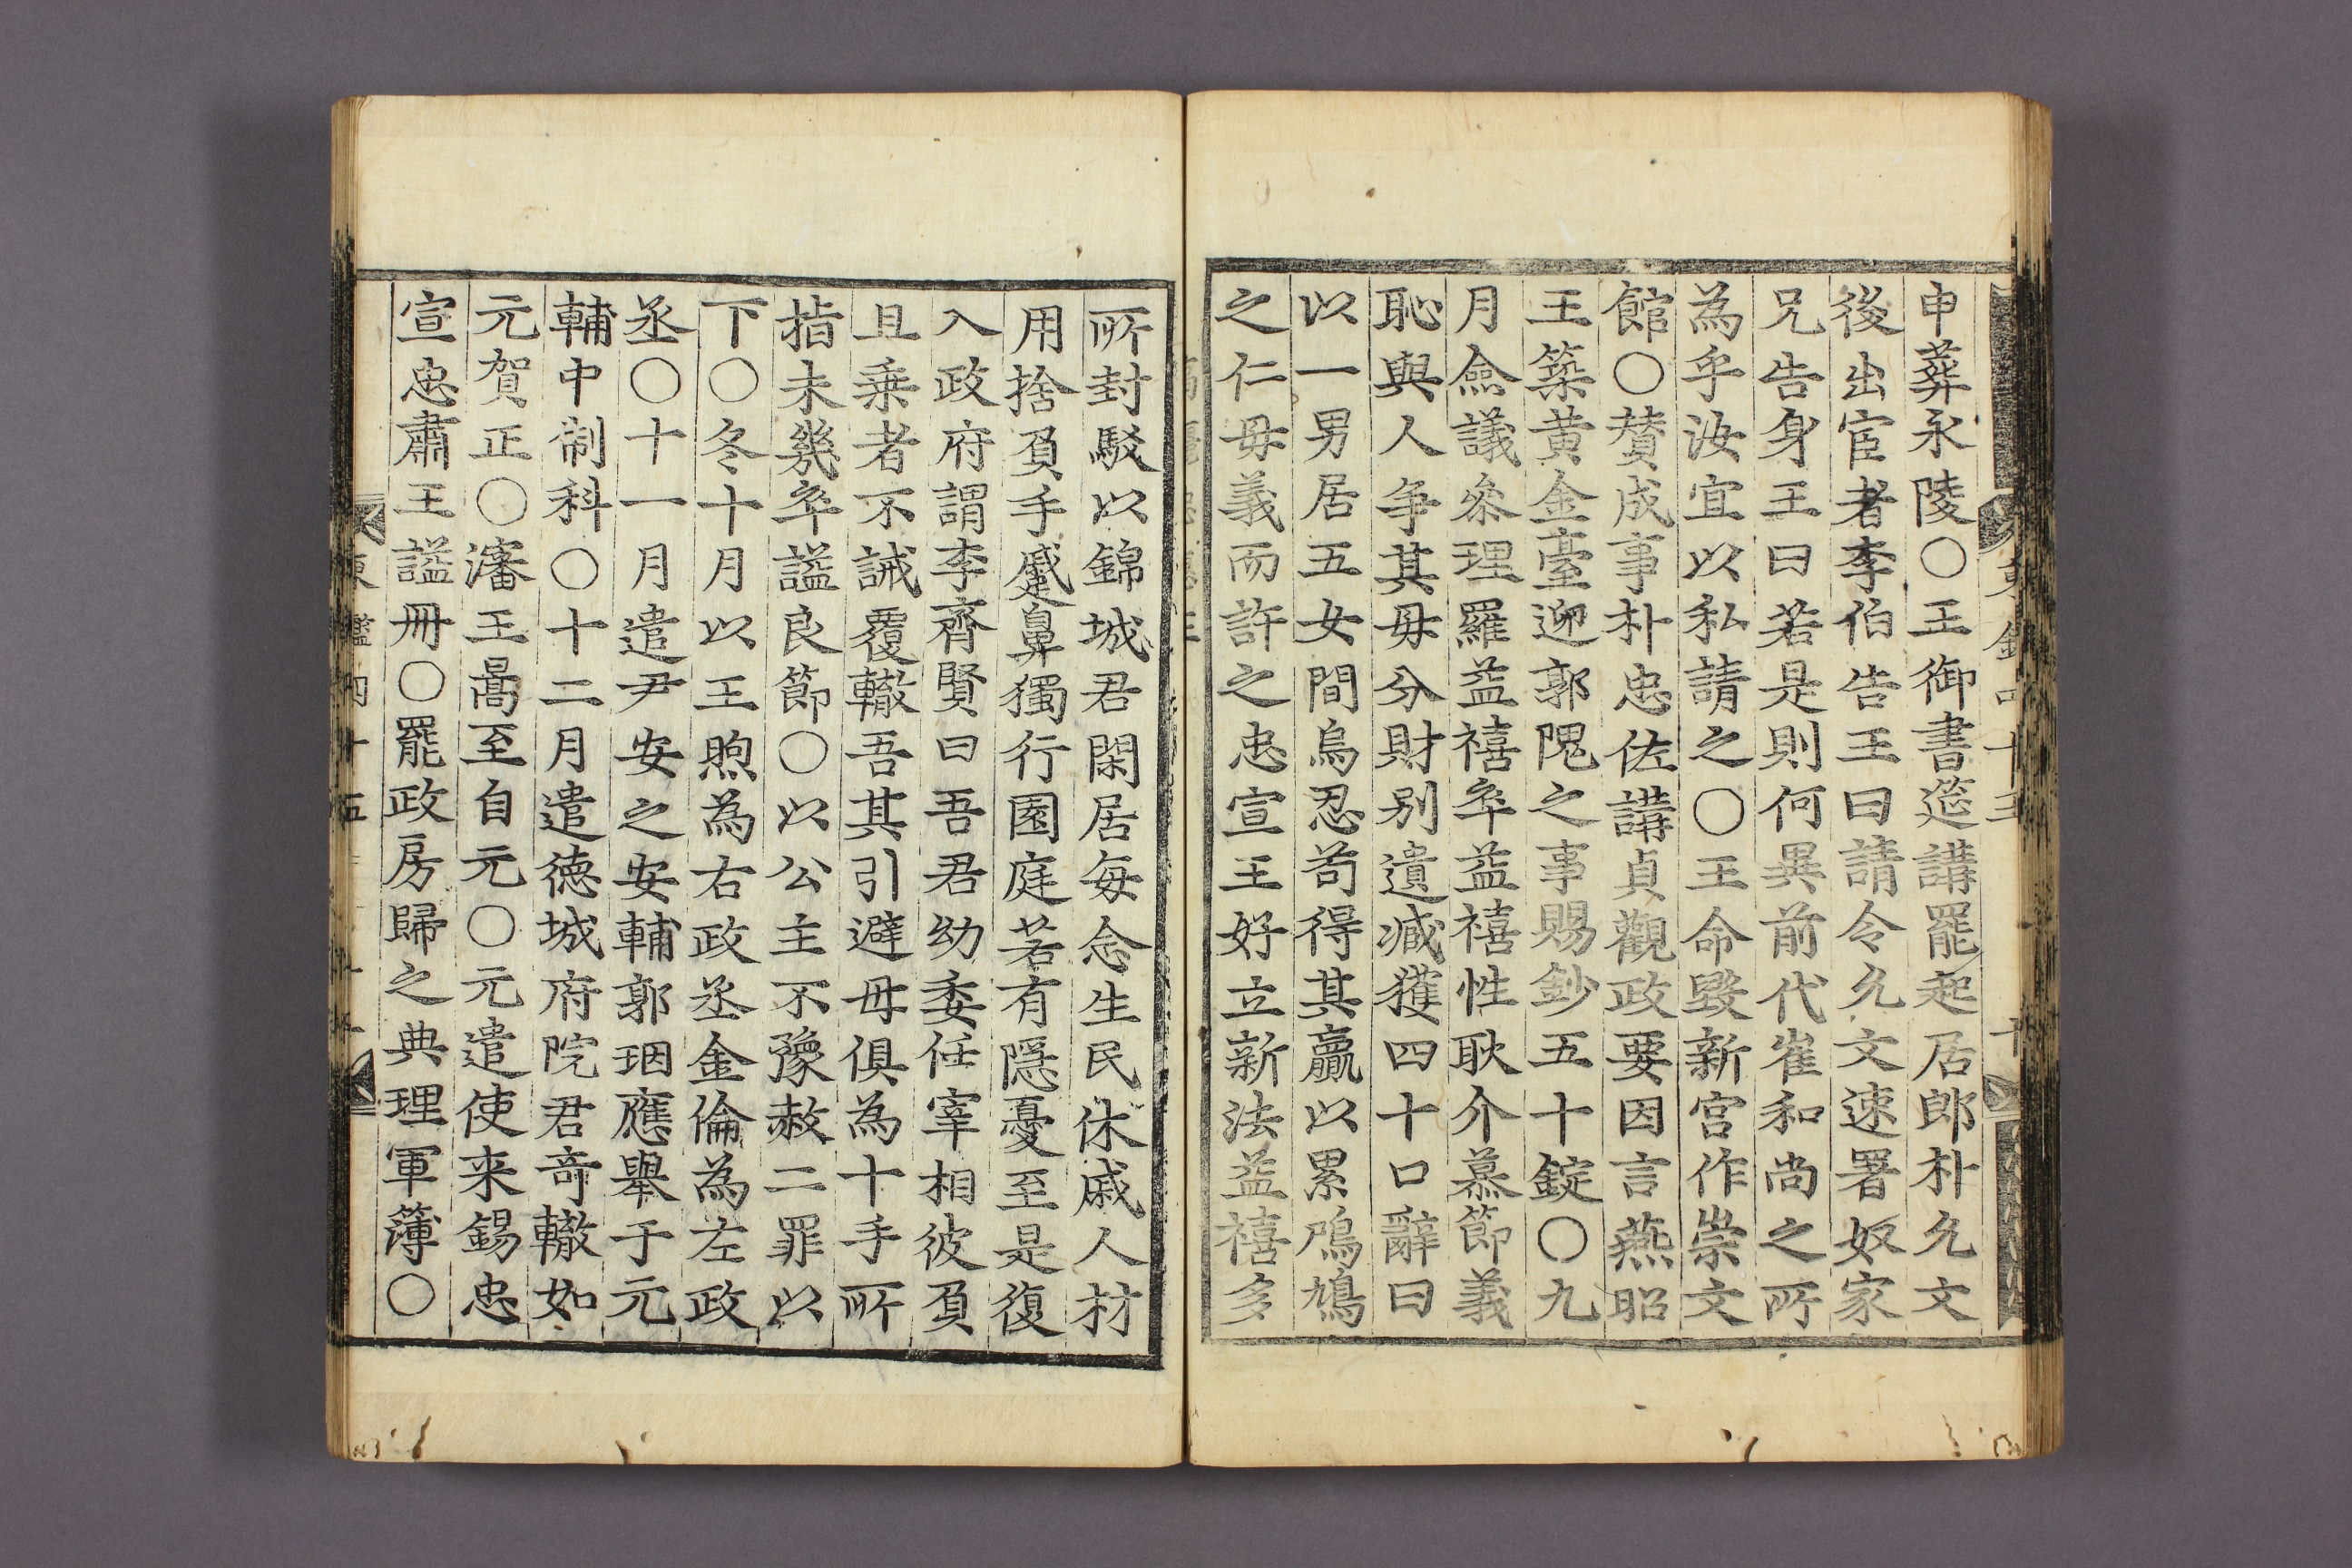 申葬永陵○王御書筵講罷起居郎朴允文
後出宦者李伯告王曰請令允文速署奴家
兄告身王曰若是則何異前代崔和尚之所
為乎汝宜以私請之○王命毀新宮作崇文
館○贊成事朴忠佐講貞觀政要因言燕昭
王築黃金臺迎郭隗之事賜鈔五十錠○九
月僉議叅理羅益禧卒益禧性耿介慕節義
恥與人爭其母分財別遺臧獲四十口辭曰
以一男居五女間烏忍苟得其贏以累鳲鳩
之仁母義而許之忠宣王好立新法益禧多
所封駁以錦城君閑居每念生民休戚人材
用捨負手蹙鼻獨行園庭若有隱憂至是復
入政府謂李齊賢曰吾君幼委任宰相彼負
且乗者不誡覆轍吾其引避毋俱為十手所
指未幾卒謚良節○以公主不豫赦二罪以
下○冬十月以王煦為右政丞金倫為左政
丞○十一月遣尹安之安輔郭珚應舉于元
輔中制科○十二月遣德城府院君奇轍如
元賀正○瀋王暠至自元○元遣使来錫忠
宣忠肅王謚冊○罷政房歸之典理軍簿○
東鑑四十五